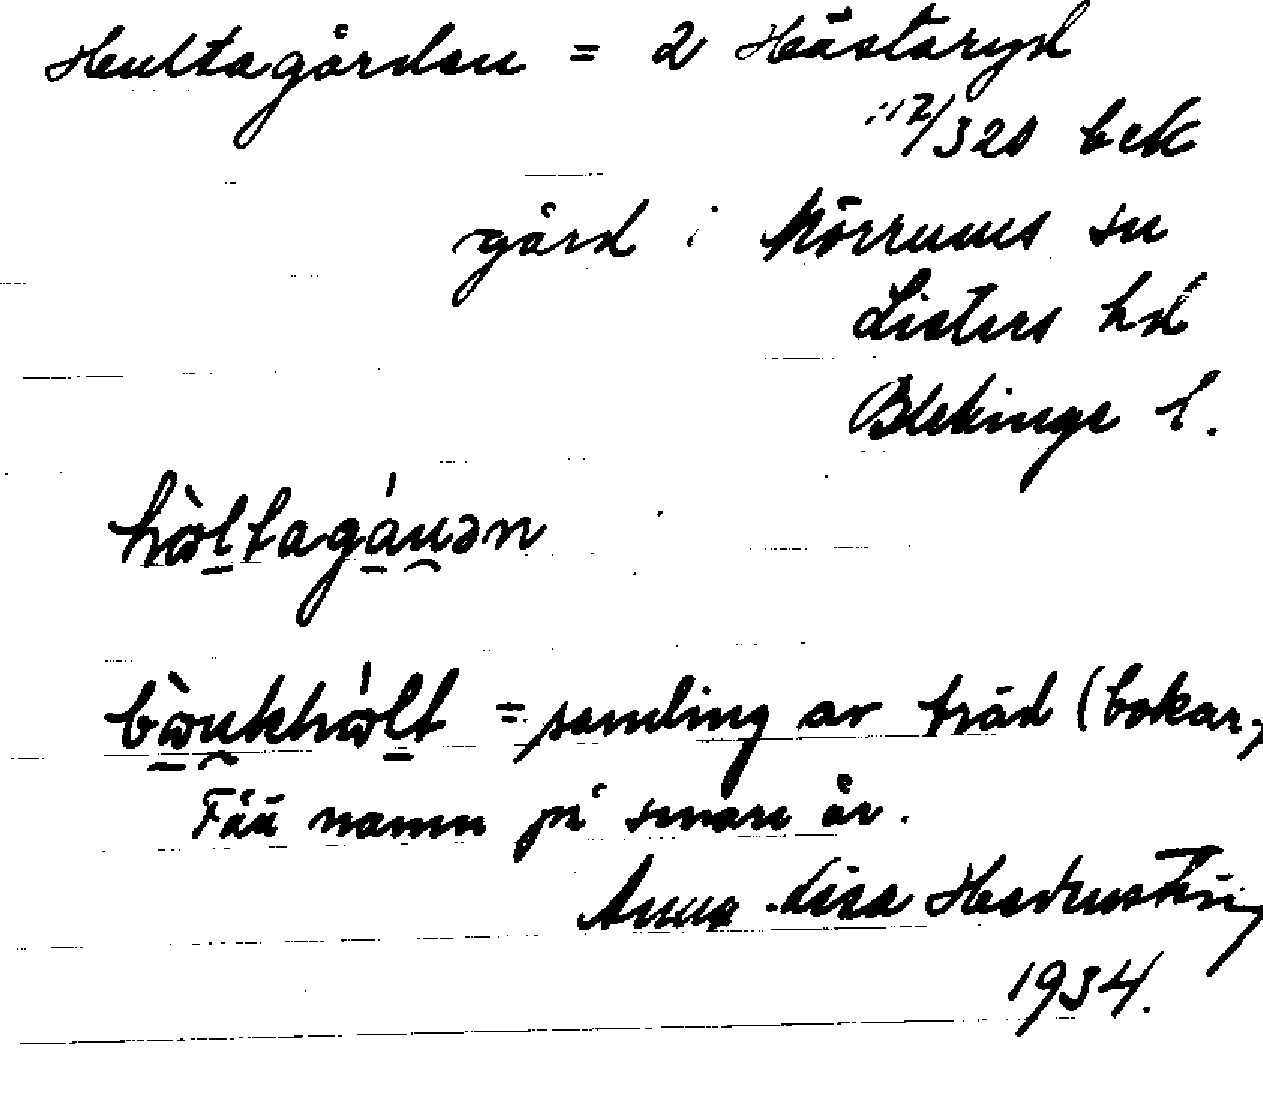 Hultagården = 2 Hästaryd
117/320 bek
gård i Mörrums sn
Listers hd
Blekinge l.
hὼltagáu̯ən
bὼu̯khὼlt = samling av träd (bokar,
Fåü namn på senare år.
Anna-Lisa
1934.